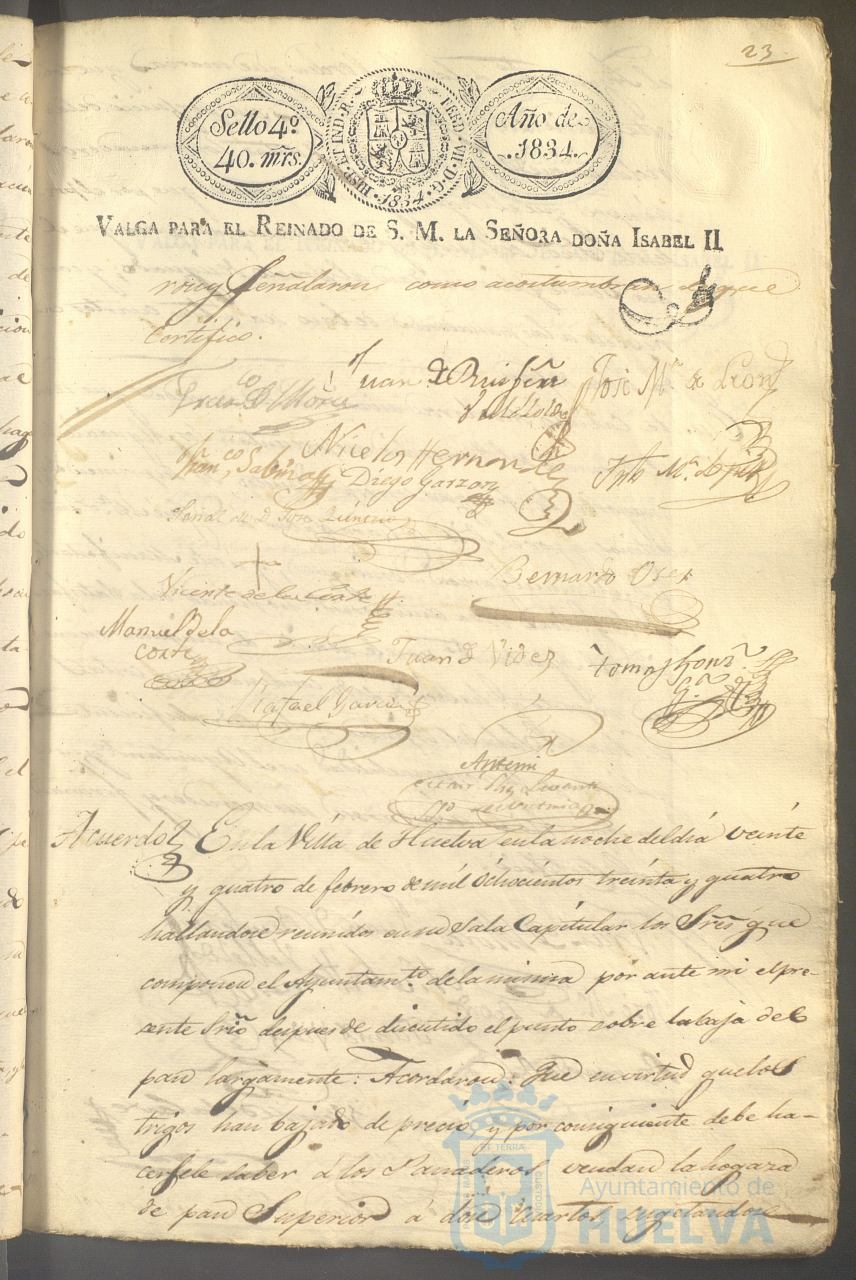 23
Sello 4º
40. mrs.
HISP. ET IND. R. FERD. VII. D. G.
1834
Año de
1834.
VALGA PARA EL REINADO DE S. M. LA SEÑORA DOÑA ISABEL II
ron y señalaron como acostumbran de que
Certifico.
Juan de
José Mª de Leon
Franco Sabina
Nicolas Hernandez
Diego Garzon
Señal de D. José
Vicente de la Corte
Bernardo
Manuel de la
Corte
Juan de Videz
Tomas
Rafael Garcia
Antemi
Acuerdo En la Villa de Huelva en la noche del día veinte
y quatro de febrero de mil ochocientos treinta y quatro
hallandose reunidos en su Sala Capitular los Sres que
componen el Ayuntamto de la misma por ante mi el pre-
sente Srio despues de discutido el punto sobre la baja del
pan largamente: Acordaron: Que en virtud que los
trigos han bajado de precio, y por consiguiente debe ha-
cersele saber á los Panaderos vendan la hogaza
de pan Superior á doce cuartos sugetandose
Ayuntamiento de
HUELVA